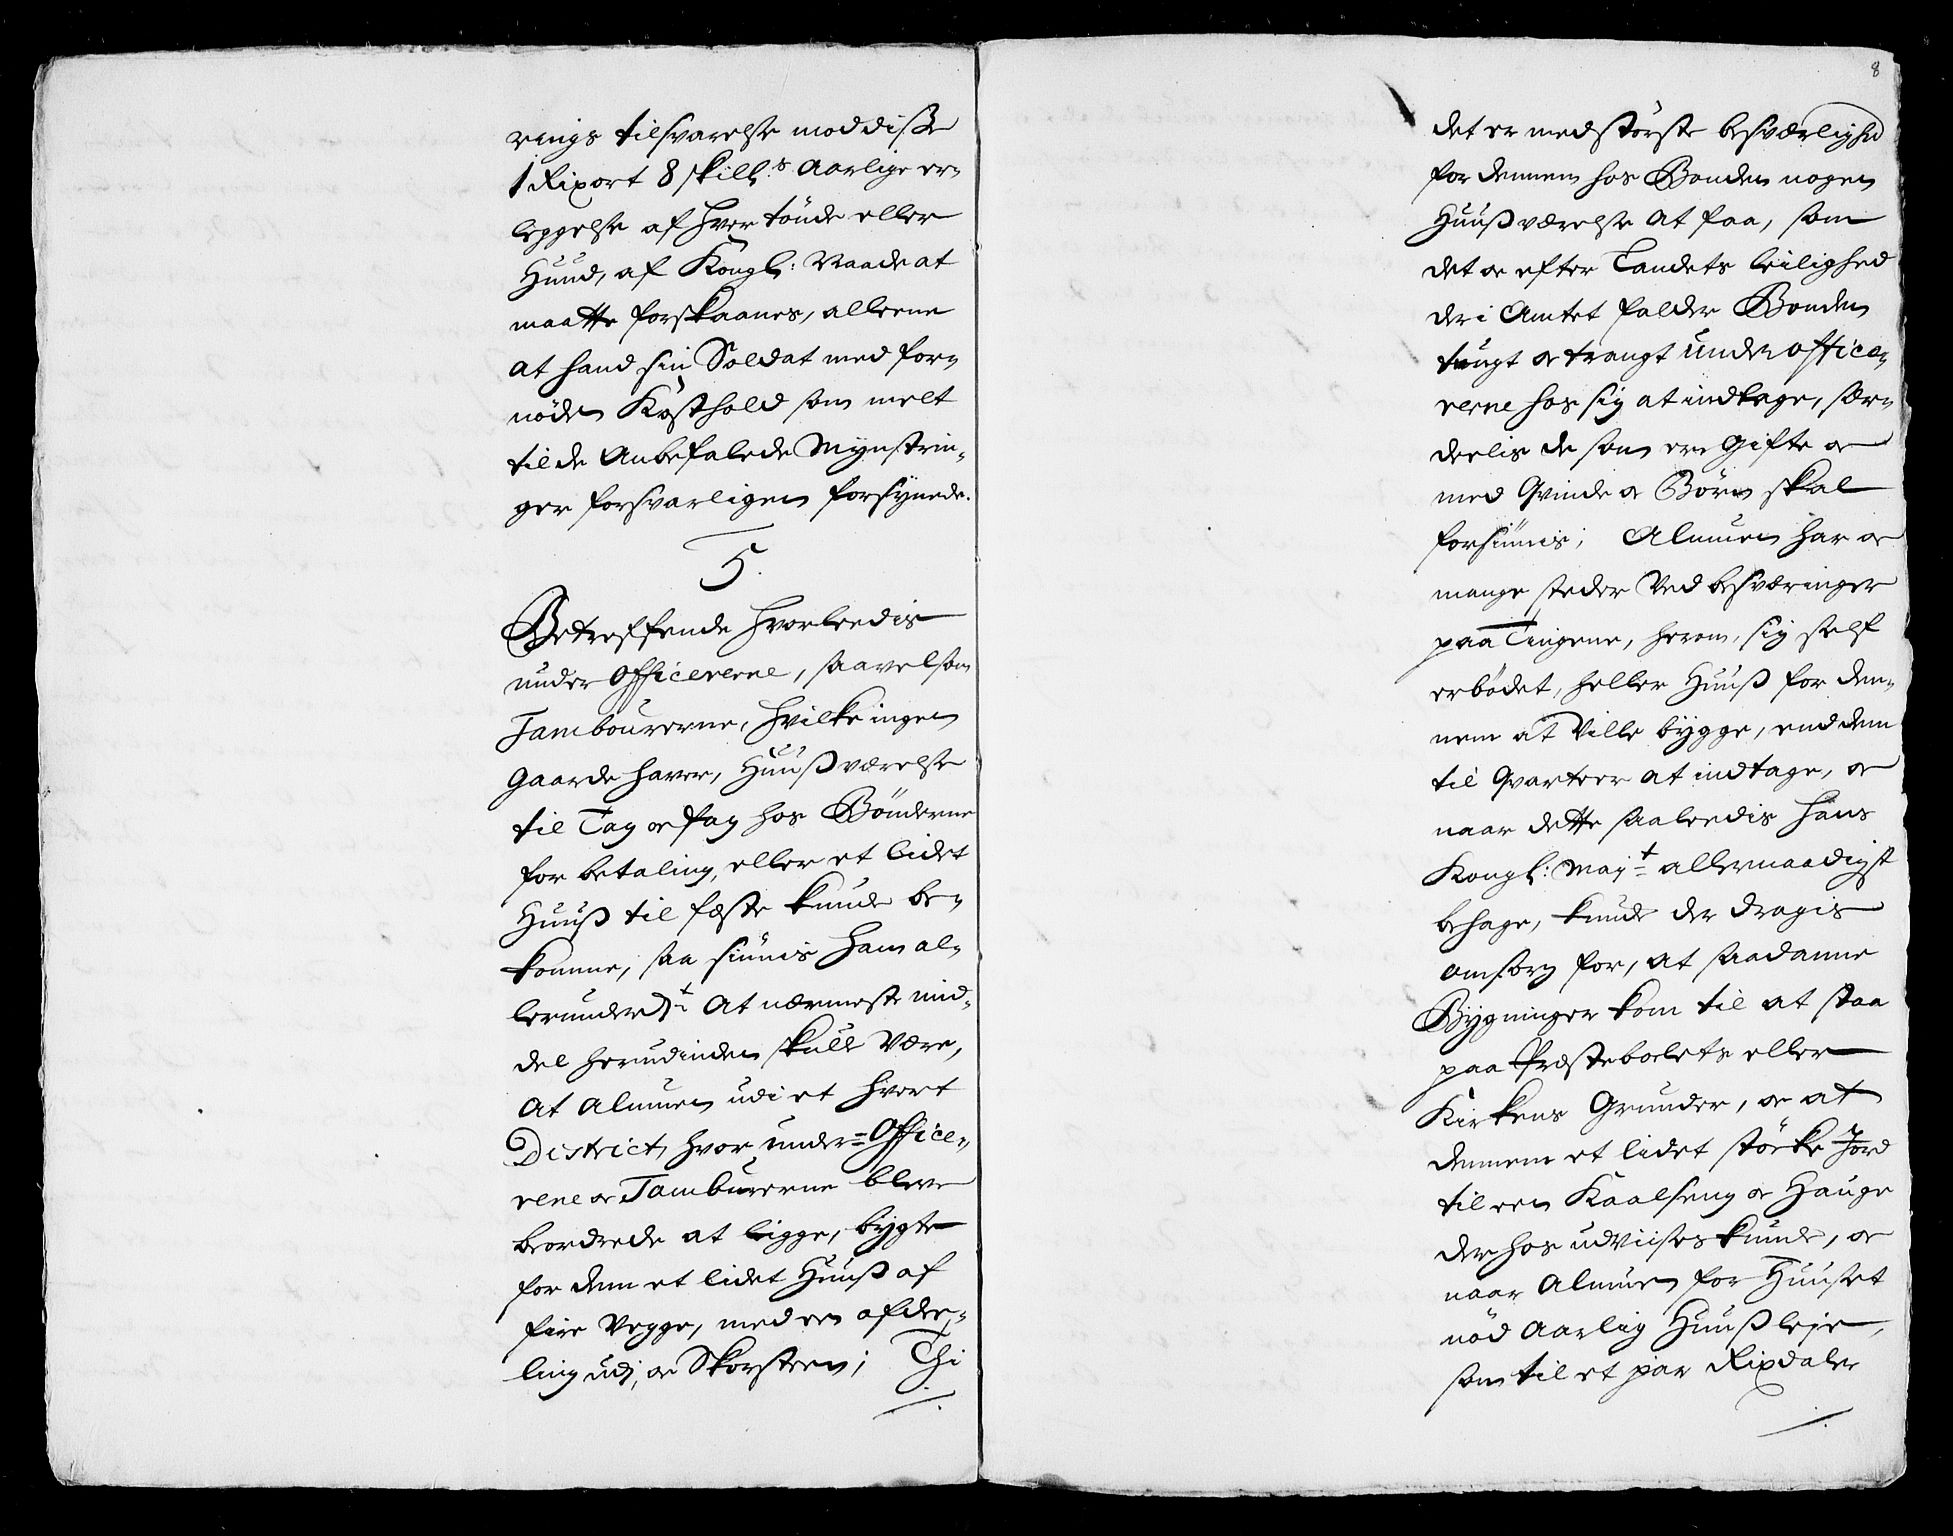 rings tilsvarelse mod disse
1 Rixort 8 skill.s Aarlige er-
leggelse af hver tönde eller
Huud, af Kongl: Naade at
maatte forskaanes, alleene
at hand sin Soldat med for-
nöden Kosthold som melt
til de Anbefalede Mynstrin-
ger forsvarligen forsynede.
5.
Betreffende hvorleedis
under Officererne, saavelsom
Tambourerne, hvilke ingen
Gaarde haver, Huusværelse
til Tag oc fag hos Bönderne
for betaling, eller et lidet
Huus til fæste kunde be-
komme, saa siunis ham al-
lerunderd.t At nærmeste mid-
del herudinden skulle Være,
At Almuen udi et hvert
District, hvor under=Office-
rene oc Tamburerne bleve
beordrede at ligge, bygte
for dem et lidet Huus af
fire Vegge, med een afdee-
ling udj, oc Skorsteen; Thi
8
det er med störste besværlighed
for dennem hos Bonden nogen
Huusværelse At faa, som
det oc efter Landets leilighed
der i Amtet falder Bonden
tungt oc trangt under office-
rerne hos sig at indtage, sær-
deelis de som ere Gifte oc
med Qvinde oc Börn skal
forsiunis; Almuen har oc
mange steder Ved besværinger
paa Tingene, herom, sig self
erbödet, heller Huus for den-
nem at Ville bygge, end dem
til Qvarteer at indtage, oc
naar dette saaleedis Hans
Kongl: May.t allernaadigst
behage, kunde der dragis
omsorg for, at saadanne
Bygninger kom til at staa
paa Præstebolets eller
Kirkens Grunder, oc at
dennem et lidet störke Jord
til een Kaalseng oc Hauge
der hos udviises kunde, oc
naar Almuen for Huuset
nöd Aarlig Huusleje,
som til et par Rixdaler